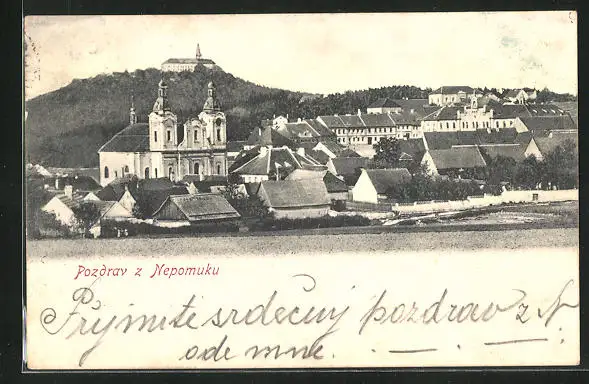 Pozdrav z Nepomuku
Přijmite srdečný pozdrav z N
ode mne